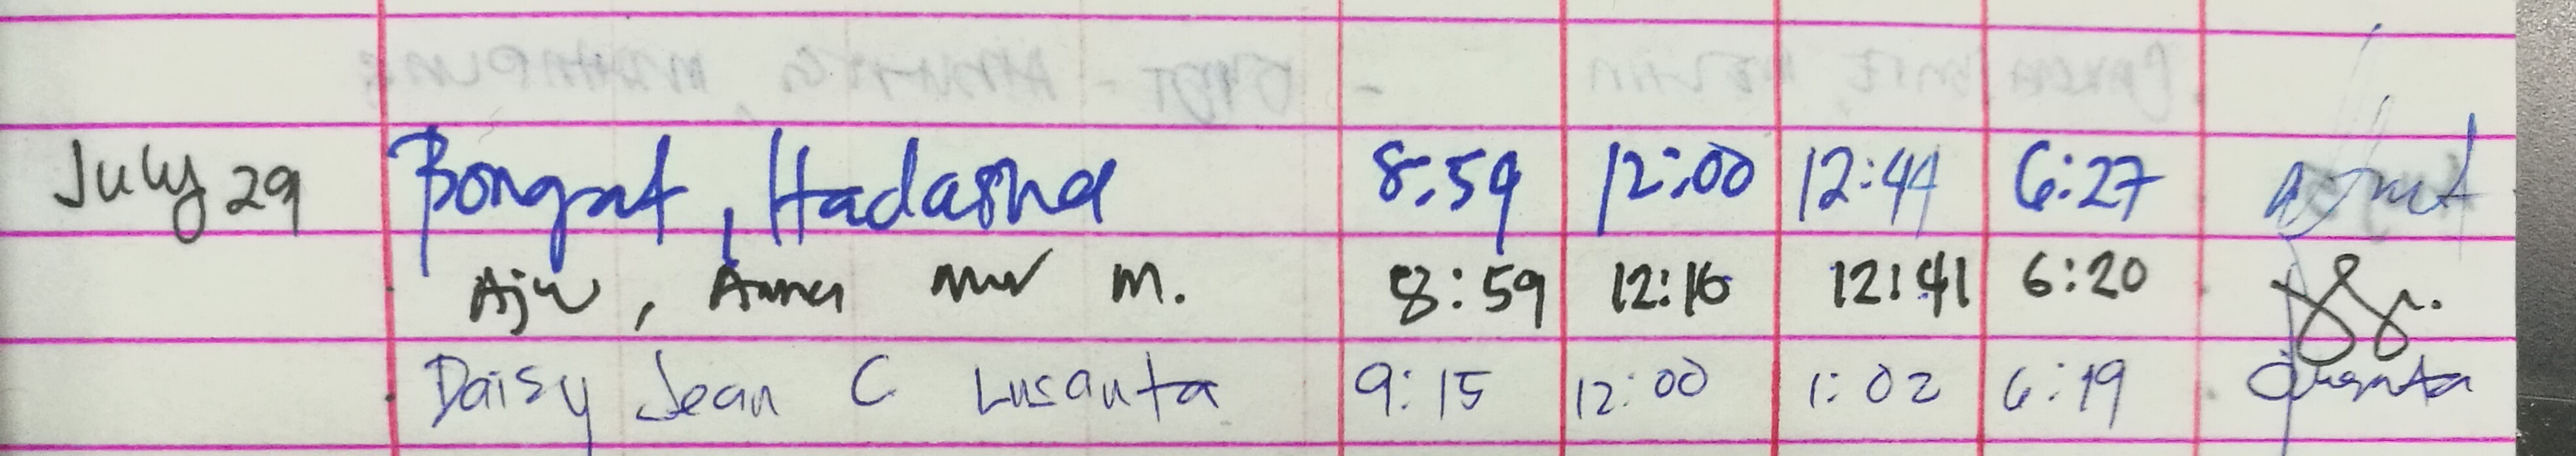 July 29 Bongat, Hadassha 8:59 12:00 12:44 6:27
Anna M. 8:59 12:16 12:41 6:20
Daisy Jean C Lusanta 9:15 12:00 1:02 6:19